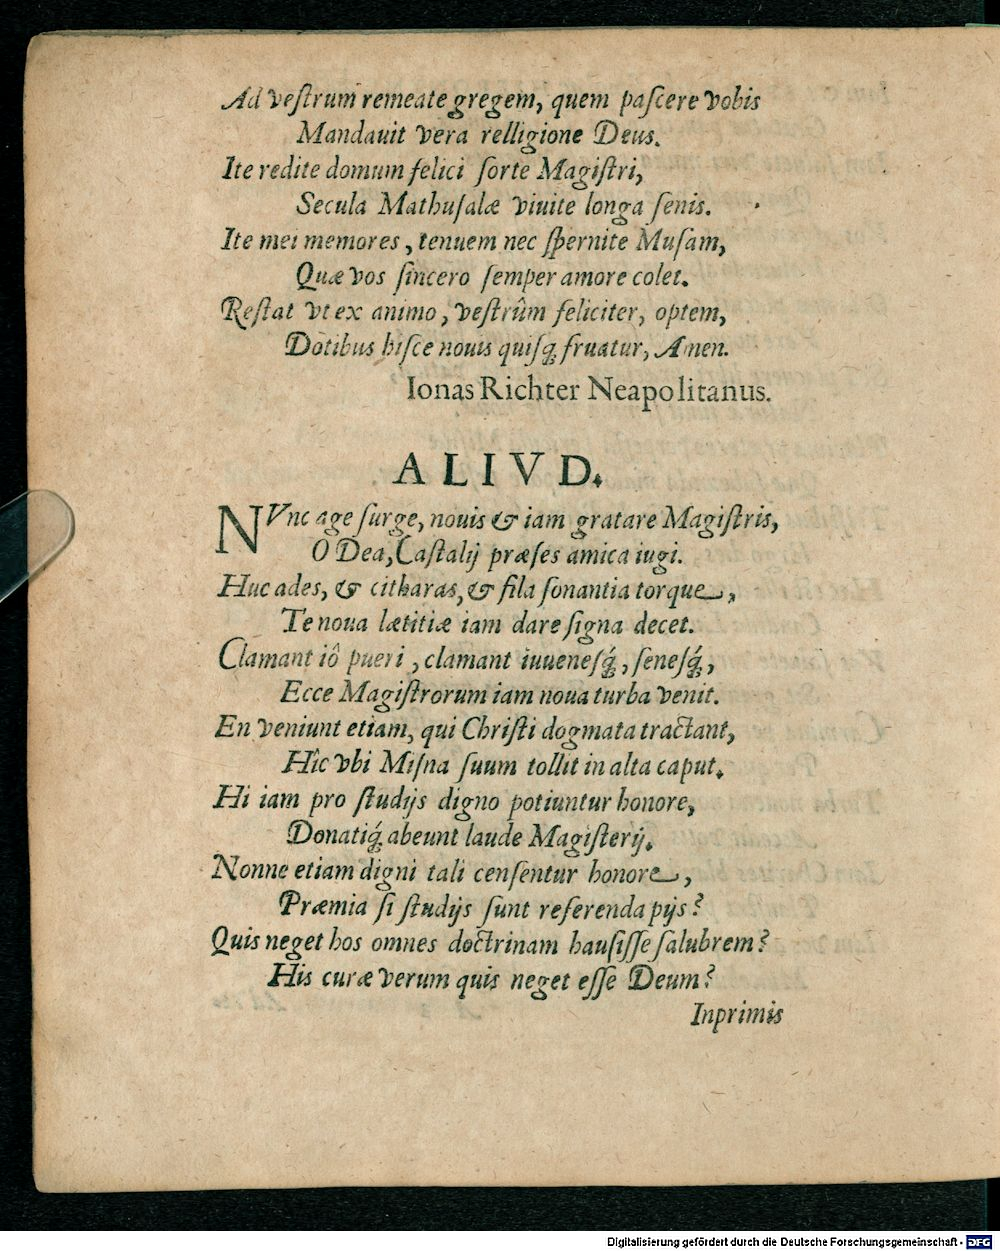 Ad veſtrum remeate gregem, quem paſcere vobis
Mandauit vera relligione Deus.
Ite redite domum felici ſorte Magiſtri,
Secula Mathuſalæ viuite longa ſenis.
Ite mei memores, tenuem nec ſpernite Muſam,
Quæ vos ſincero ſemper amore colet.
Reſtat vt ex animo, veſtrûm feliciter, optem,
Dotibus hiſce nouis quiſq́; fruatur, Amen.
Ionas Richter Neapolitanus.
ALIVD.
NVnc age ſurge, nouis & iam gratare Magiſtris,
O Dea, Caſtalij præſes amica iugi.
Huc ades, & citharas, & fila ſonantia torque,
Te noua lætitiæ iam dare ſigna decet.
Clamant iô pueri, clamant iuueneſq́;, ſeneſq́;,
Ecce Magiſtrorum iam noua turba venit.
En veniunt etiam, qui Chriſti dogmata tractant,
Hîc vbi Miſna ſuum tollit in alta caput.
Hi iam pro ſtudijs digno potiuntur honore,
Donatiq́; abeunt laude Magiſterij.
Nonne etiam digni tali cenſentur honore,
Præmia ſi ſtudijs ſunt referenda pijs?
Quis neget hos omnes doctrinam hauſiſſe ſalubrem?
His curæ verum quis neget eſſe Deum?
Inprimis
Digitalisierung gefördert durch die Deutsche Forschungsgemeinschaft - DFG